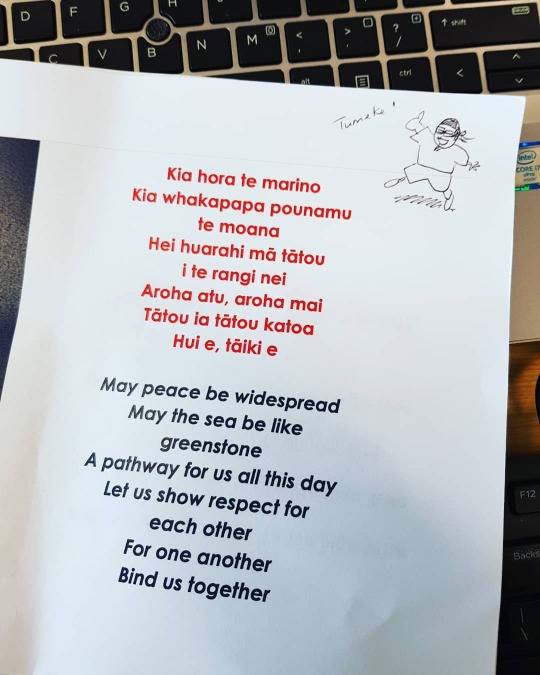 D
F
G
H
C
V
B
N
M
<
,
>
.
?
/
↑ shift
alt
ctrl
<
intel
CORE i7
Tumeke!
Kia hora te marino
Kia whakapapa pounamu
te moana
Hei huarahi mā tātou
i te rangi nei
Aroha atu, aroha mai
Tātou ia tātou katoa
Hui e, tāiki e
May peace be widespread
May the sea be like
greenstone
A pathway for us all this day
Let us show respect for
each other
For one another
Bind us together
F12
Backs
\